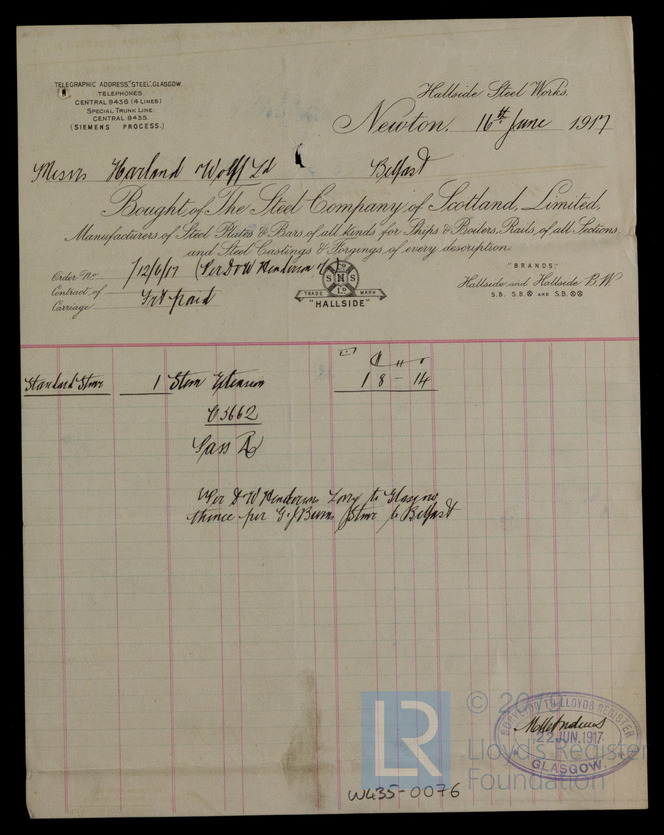 TELEGRAPHIC ADDRESS, "STEEL", GLASGOW.
TELEPHONES
CENTRAL 9436 (4 LINES)
SPECIAL TRUNK LINE
CENTRAL 9435
(SIEMENS PROCESS.)
Hallside Steel Works.
Newton, 16th June 1917
Messrs Harland Wolff Ld Belfast
Bought of The Steel Company of Scotland, Limited,
Manufacturers of Steel Plates & Bars of all kinds for Ships & Boilers, Rails of all Sections
and Steel Castings & Forgings of every description.
Order No. /12/6/17 (Per D & W Henderson
Contract of
Carriage paid
S N S
Co
Ld
TRADE MARK
"HALLSIDE"
"BRANDS"
Hallside and Hallside B.W
S.B. S.B. AND S.B.
C
Standard 1 Stem 18 - 14
C 3662
Pass
Per D W Henderson Lorry to Glasgow
thence per G & J Burns Stmr to Belfast
SURVEYOR TO LLOYDS REGISTER
22 JUN. 1917
GLASGOW.
LR
© 2019
Lloyd's Register
Foundation
W435-0076